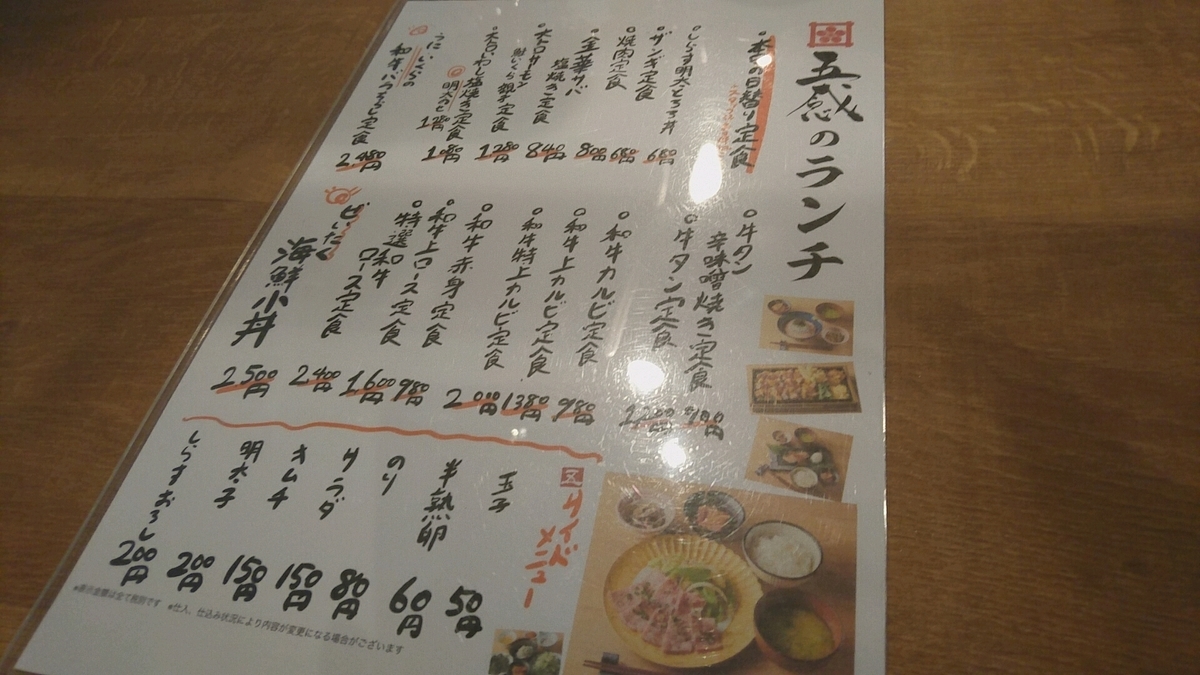 五感のランチ
本日の日替り定食
しらす明太とろろ丼 680円
ザンギ定食 680円
焼肉定食 800円
金華サバ塩焼き定食 840円
大トロサーモン
鮭いくら親子定食 1280円
大白いわし塩焼き定食 1080円
明太のせ 1280円
うに、いくらの
和牛バラちらし定食 2480円
牛タン
辛味噌焼き定食 980円
牛タン定食
和牛カルビ定食 980円
和牛上カルビ定食 1380円
和牛特上カルビ定食 2000円
和牛赤身定食 980円
和牛上ロース定食 1600円
特選和牛
ロース定食 2400円
ぜいたく
海鮮小丼 2500円
サイドメニュー
玉子 50円
半熟卵 60円
のり 80円
サラダ 150円
キムチ 150円
明太子 200円
しらすおろし 200円
※表示金額は全て税別です ※仕入、仕込み状況により内容が変更になる場合がございます